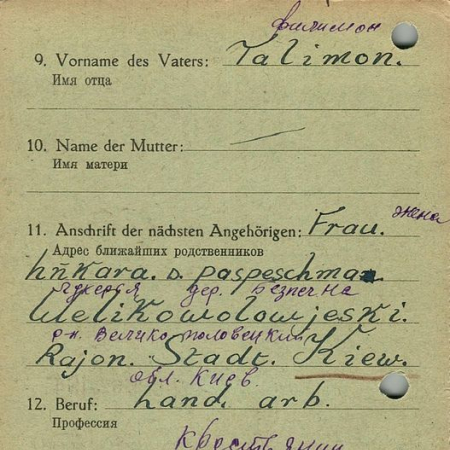 Филимон
9. Vorname des Vaters: Talimon.
Имя отца
10. Name der Mutter:
Имя матери
жена
11. Anschrift der nächsten Angehörigen: Frau.
Адрес ближайших родственников
D. Paspeschma
дер. Безпечна
Welikowolowjeski.
р-н. Велико половецкий
Rajon. Stadt. Kiew.
обл. Киев.
12. Beruf: Land. arb.
Профессия